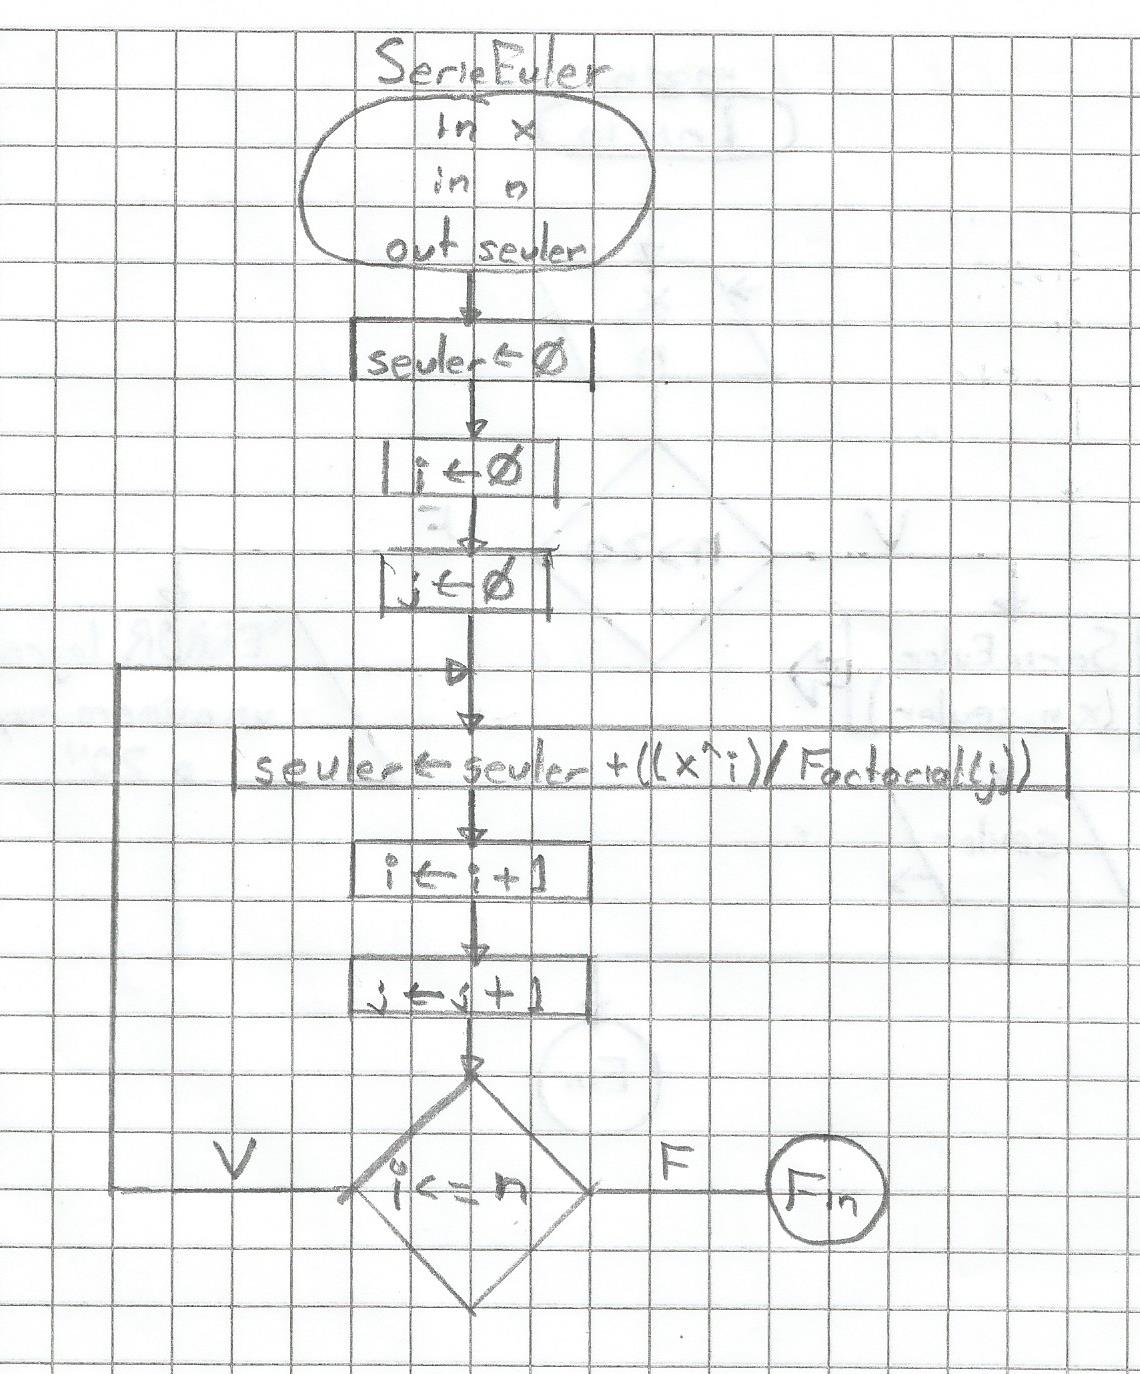 SerieEuler
in x
in n
out seuler
seuler ← Ø
i ← Ø
j ← Ø
seuler ← seuler + ((x^i) / Factorial(j))
i ← i + 1
j ← j + 1
V
i <= n
F
Fin